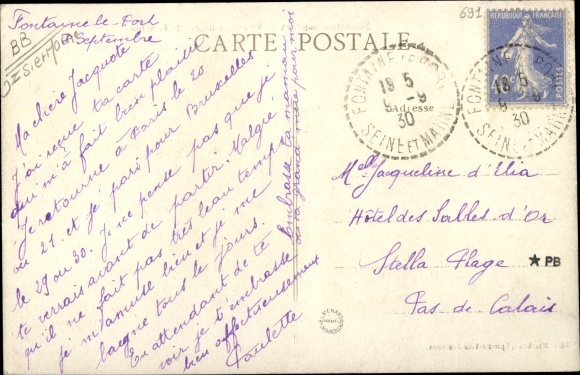 Fontaine-le-Port
8 Septembre
BB
591
CARTE POSTALE
Adresse
REPUBLIQUE FRANÇAISE
40c
POSTES
FONTAINE LE PORT
18 5
9 -9
30
SEINE ET MARNE
FONTAINE LE PORT
18 5
9 -9
30
SEINE ET MARNE
Ma chère Jacquote
J'ai reçue ta carte
qui m'a fait bien plaisir
Je retourne à Paris le 20
ou 21. et je pars pour Bruxelles
le 29 ou 30. Je ne pense pas que je
te verrais avant de partir. Malgré
qu'il ne fait pas très beau temps
je m'amuse bien et je me
baigne tous les jours.
En attendant de te
voir je t'embrasse
bien affectueusement
Paulette
Embrasse ta maman
et ta grand'mère pour moi
Melle Jacqueline d'Elia
Hôtel des Sables d'Or
Stella Plage
Pas de Calais
★ PB